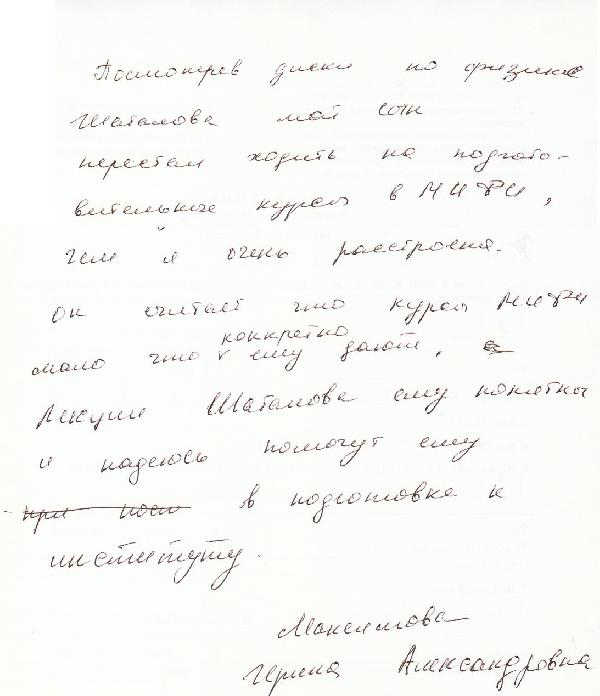 Посмотрев диски по физике
Шаталова мой сын
перестал ходить на подгото-
вительные курсы в МИФИ,
чем я очень расстроена.
Он считает что курсы МИФИ
конкретно
мало что ему дают,
Лекции Шаталова ему понятны
и надеюсь помогут ему
при пост в подготовке к
институту.
Максимова
Ирина Александровна